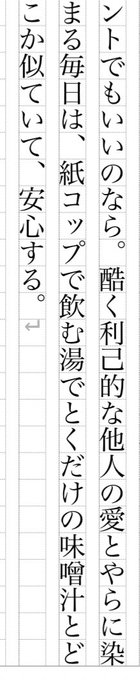 ントでもいいのなら。酷く利己的な他人の愛とやらに染
まる毎日は、紙コップで飲む湯でとくだけの味噌汁とど
こか似ていて、安心する。